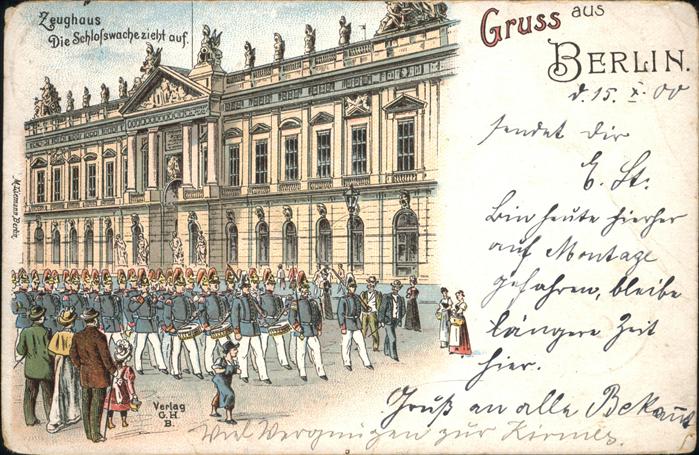 Zeughaus
Die Schlosswache zieht auf.
Gruss aus
BERLIN.
d. 15. X. 00
sendet Dir
E. St.
Bin heute hierher
auf Montage
gefahren, bleibe
längere Zeit
hier.
Gruß an alle Bekannt
Viel Vergnügen zur Kirmes.
Verlag
G. H.
B.